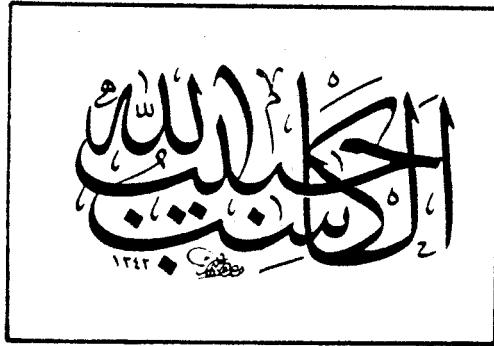 الكاسب حبيب الله
١٣٤٢